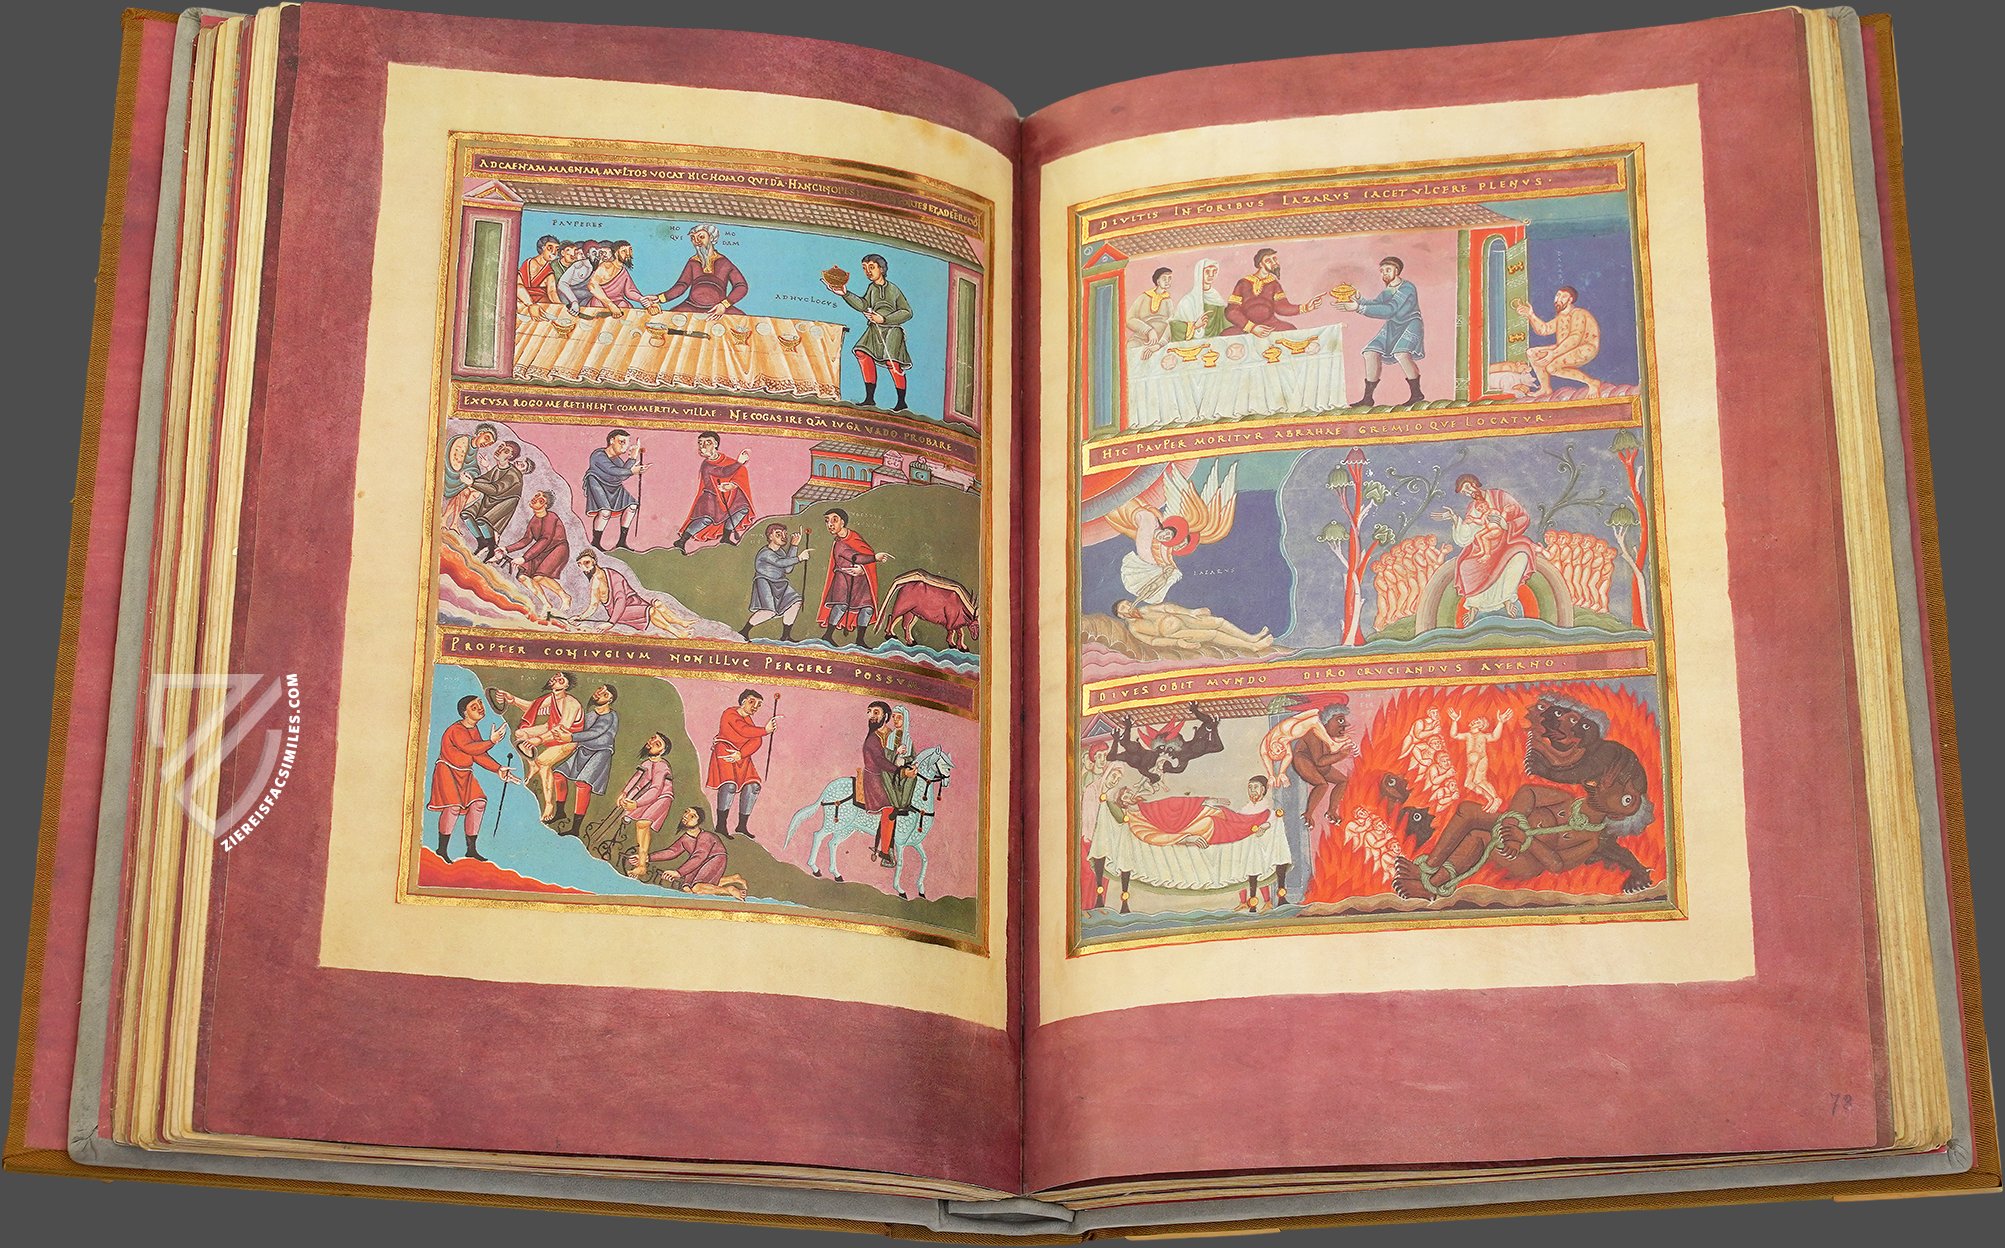 AD CAENAM MAGNAM MVLTOS VOCAT HIC HOMO QVIDA
PAVPERES
HO MO
QVI DAM
ADHVC LOCVS
EXCVSA ROGO ME RETINENT COMMERTIA VILLAE. NE COGAS IRE QVM IVGA VADO PROBARE.
PROPTER CONIVGIVM NON ILLVC PERGERE POSSVM
DIVITIS IN FORIBUS LAZARVS IACET VLCERE PLENVS.
HIC PAVPER MORITVR ABRAHAE GREMIO QVE LOCATVR.
LAZARVS
DIVES OBIT MVNDO DIRO CRVCIANDVS AVERNO.
78
ZIEREISFACSIMILES.COM